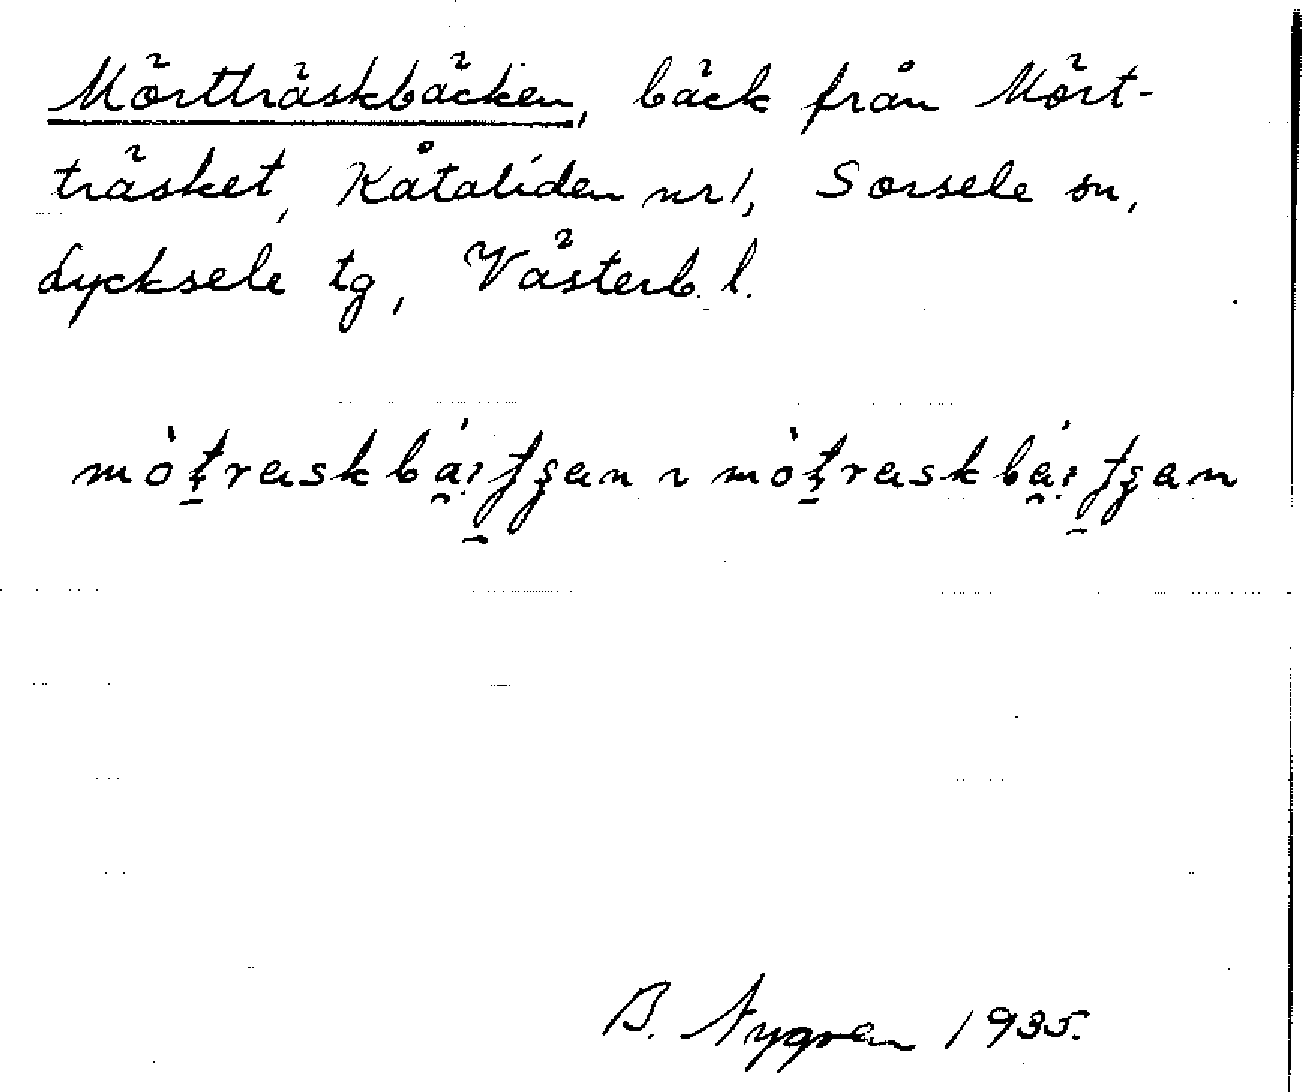 Mörtträskbäcken, bäck från Mört-
träsket, Kåtaliden nr 1, Sorsele sn,
Lycksele tg, Västerb. l.
B. Nygren 1935.